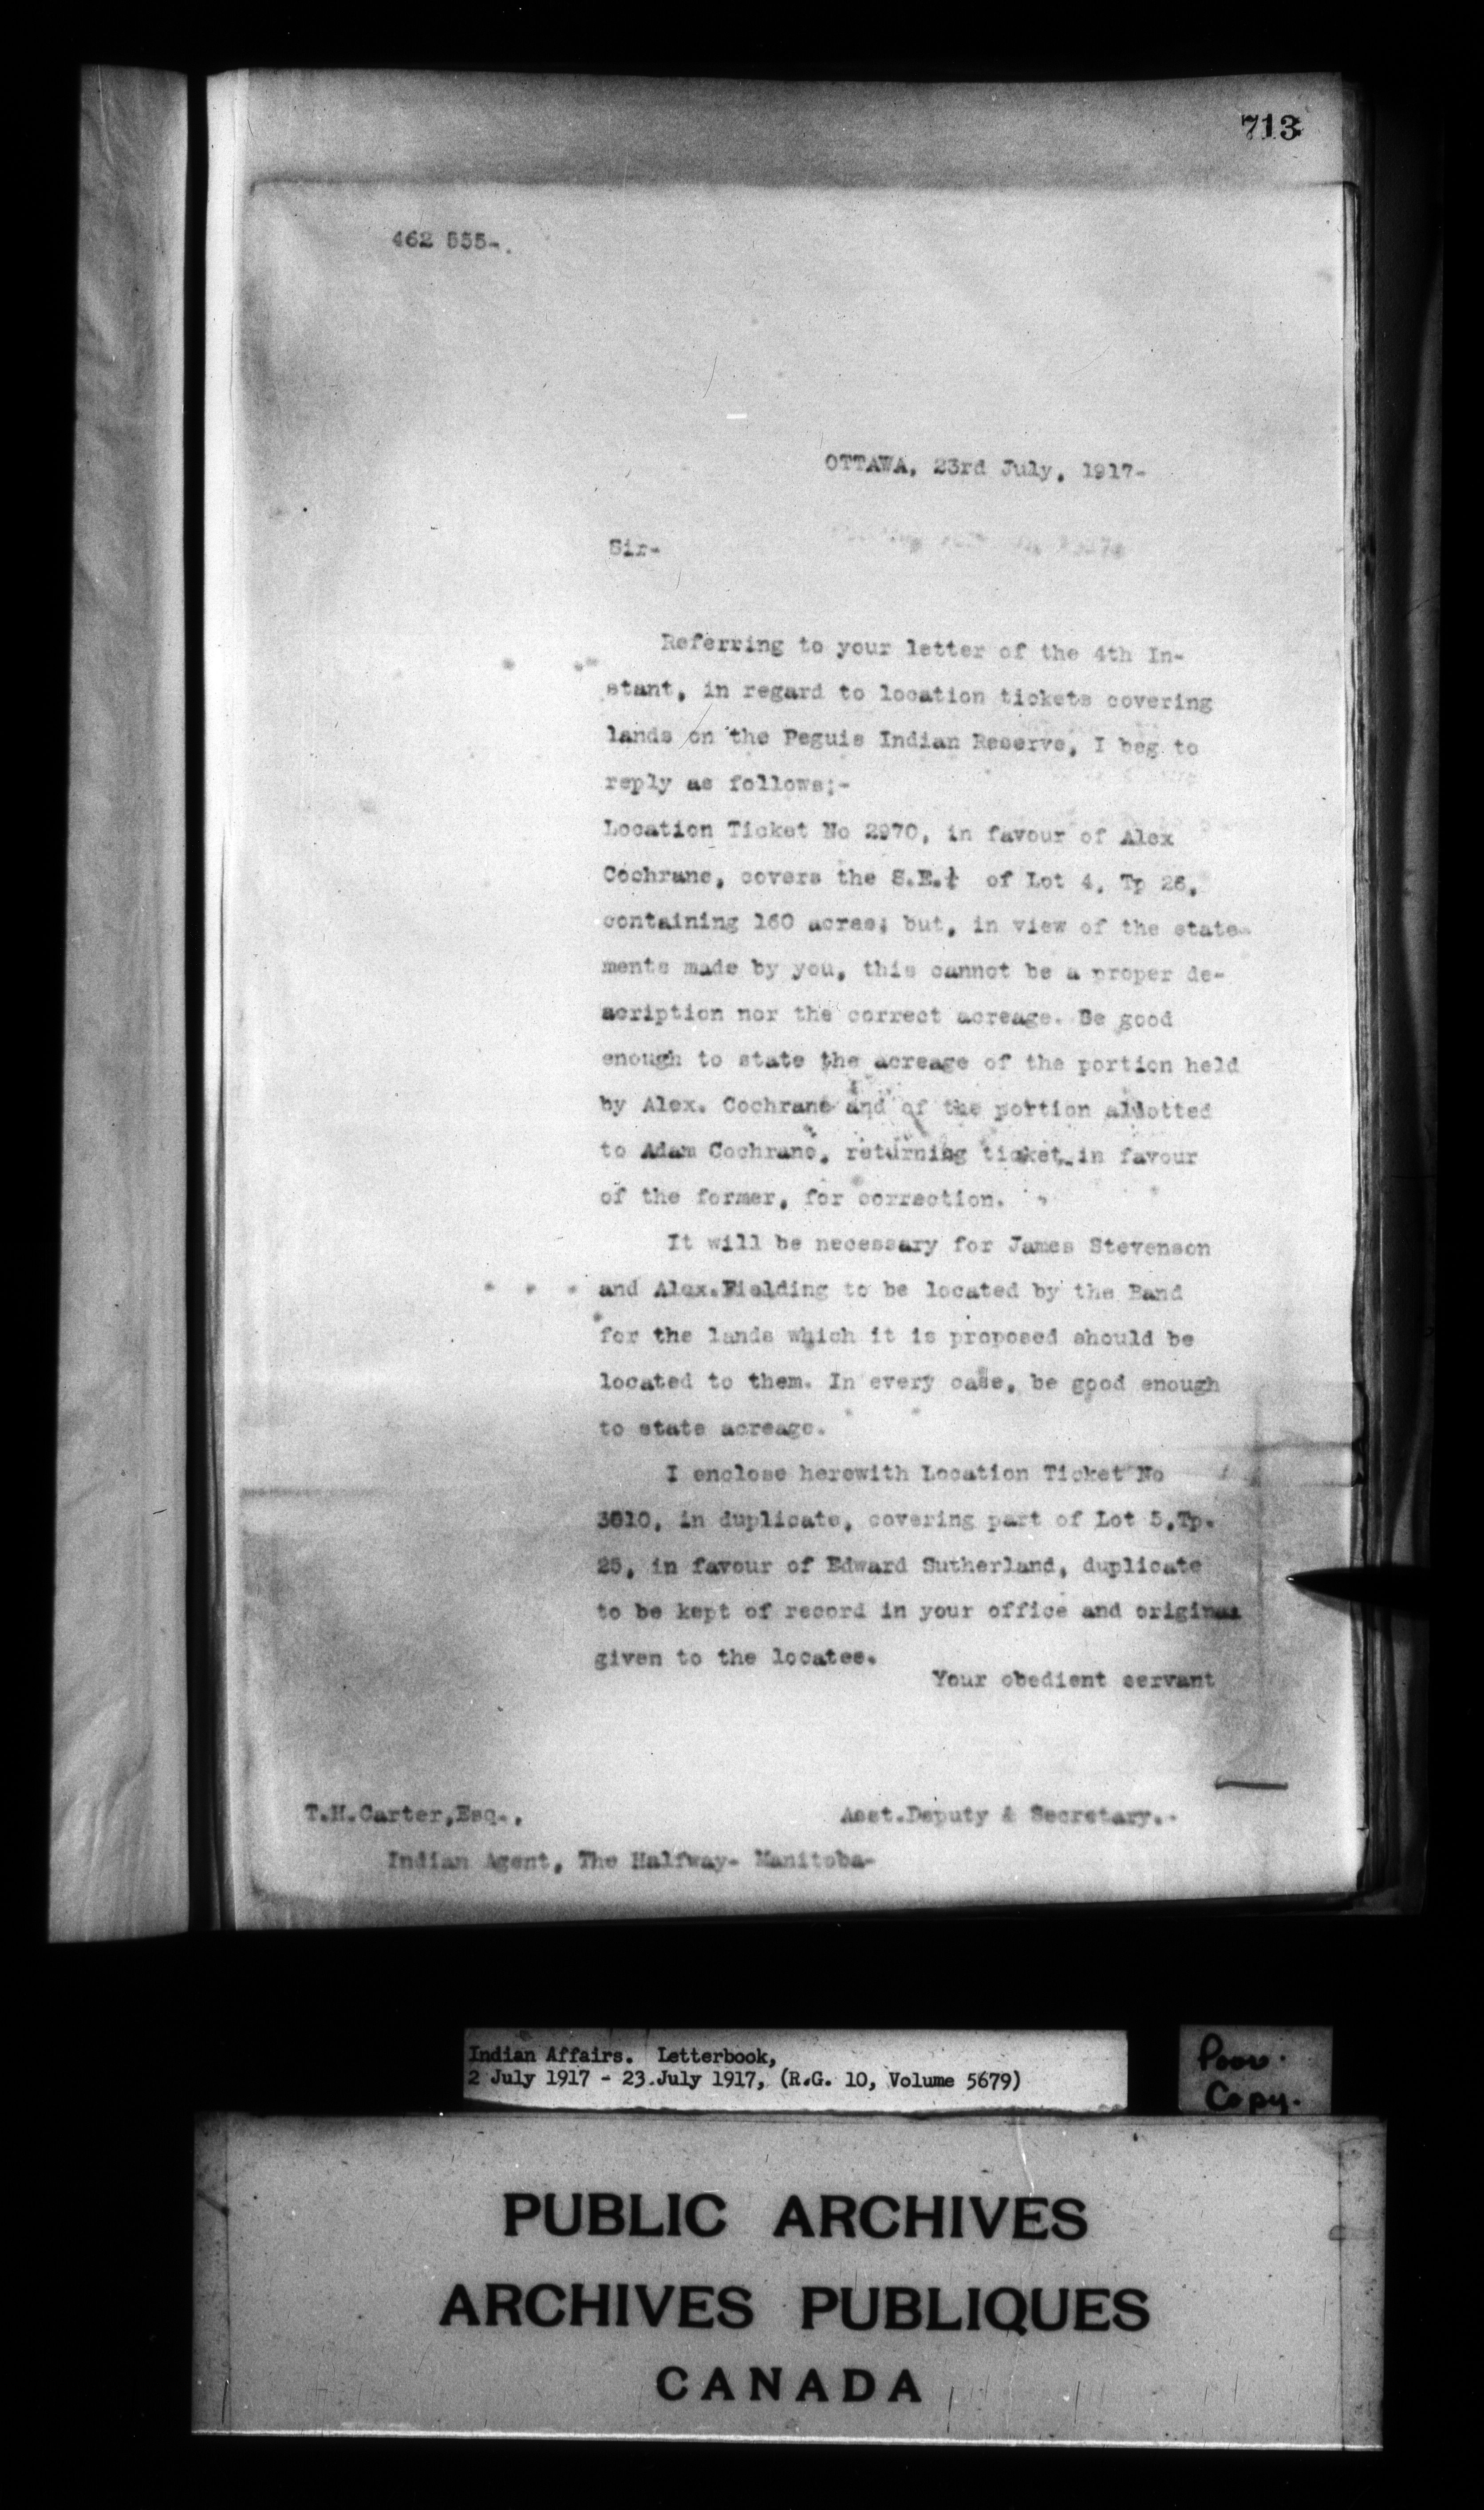 713
462 555-.
OTTAWA, 23rd July, 1917-
Sir-
Referring to your letter of the 4th In-
stant, in regard to location tickets covering
lands on the Peguis Indian Reserve, I beg to
reply as follows;-
Location Ticket No 2970, in favour of Alex
Cochrane, covers the S.E.¼ of Lot 4, Tp 26,
containing 160 acres; but, in view of the state-
ments made by you, this cannot be a proper de-
scription nor the correct acreage. Be good
enough to state the acreage of the portion held
by Alex. Cochrane and of the portion allotted
to Adam Cochrane, returning ticket in favour
of the former, for correction.
It will be necessary for James Stevenson
and Alex.Fielding to be located by the Band
for the lands which it is proposed should be
located to them. In every case, be good enough
to state acreage.
I enclose herewith Location Ticket No
3010, in duplicate, covering part of Lot 5,Tp.
25, in favour of Edward Sutherland, duplicate
to be kept of record in your office and original
given to the locatee.
Your obedient servant
T.H.Carter,Esq-.
Asst.Deputy & Secretary.-
Indian Agent, The Halfway- Manitoba-
Indian Affairs. Letterbook,
2 July 1917 - 23 July 1917, (R.G. 10, Volume 5679)
Poor.
Copy.
PUBLIC ARCHIVES
ARCHIVES PUBLIQUES
CANADA